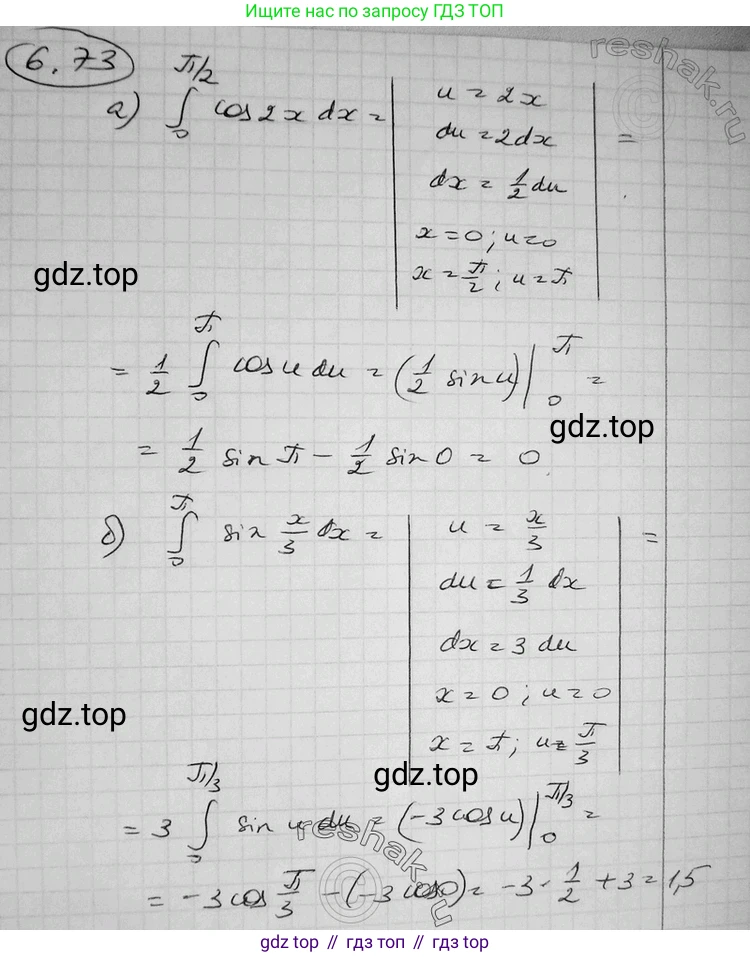 Ищите нас по запросу ГДЗ ТОП
6.73
а) ∫₀^{π/2} cos2x dx = | u = 2x
du = 2dx
dx = 1/2 du
x = 0; u = 0
x = π/2; u = π | =
gdz.top
= 1/2 ∫₀^π cos u du = (1/2 sin u) |₀^π =
gdz.top
= 1/2 sin π − 1/2 sin 0 = 0
б) ∫₀^π sin x/3 dx = | u = x/3
du = 1/3 dx
dx = 3 du
x = 0; u = 0
x = π; u = π/3 | =
gdz.top
gdz.top
= 3 ∫₀^{π/3} sin u du = (−3 cos u) |₀^{π/3} =
= −3 cos π/3 − (−3 cos 0) = −3 · 1/2 + 3 = 1,5
reshak.ru
reshak.ru
gdz top // гдз топ // gdz top // гдз топ